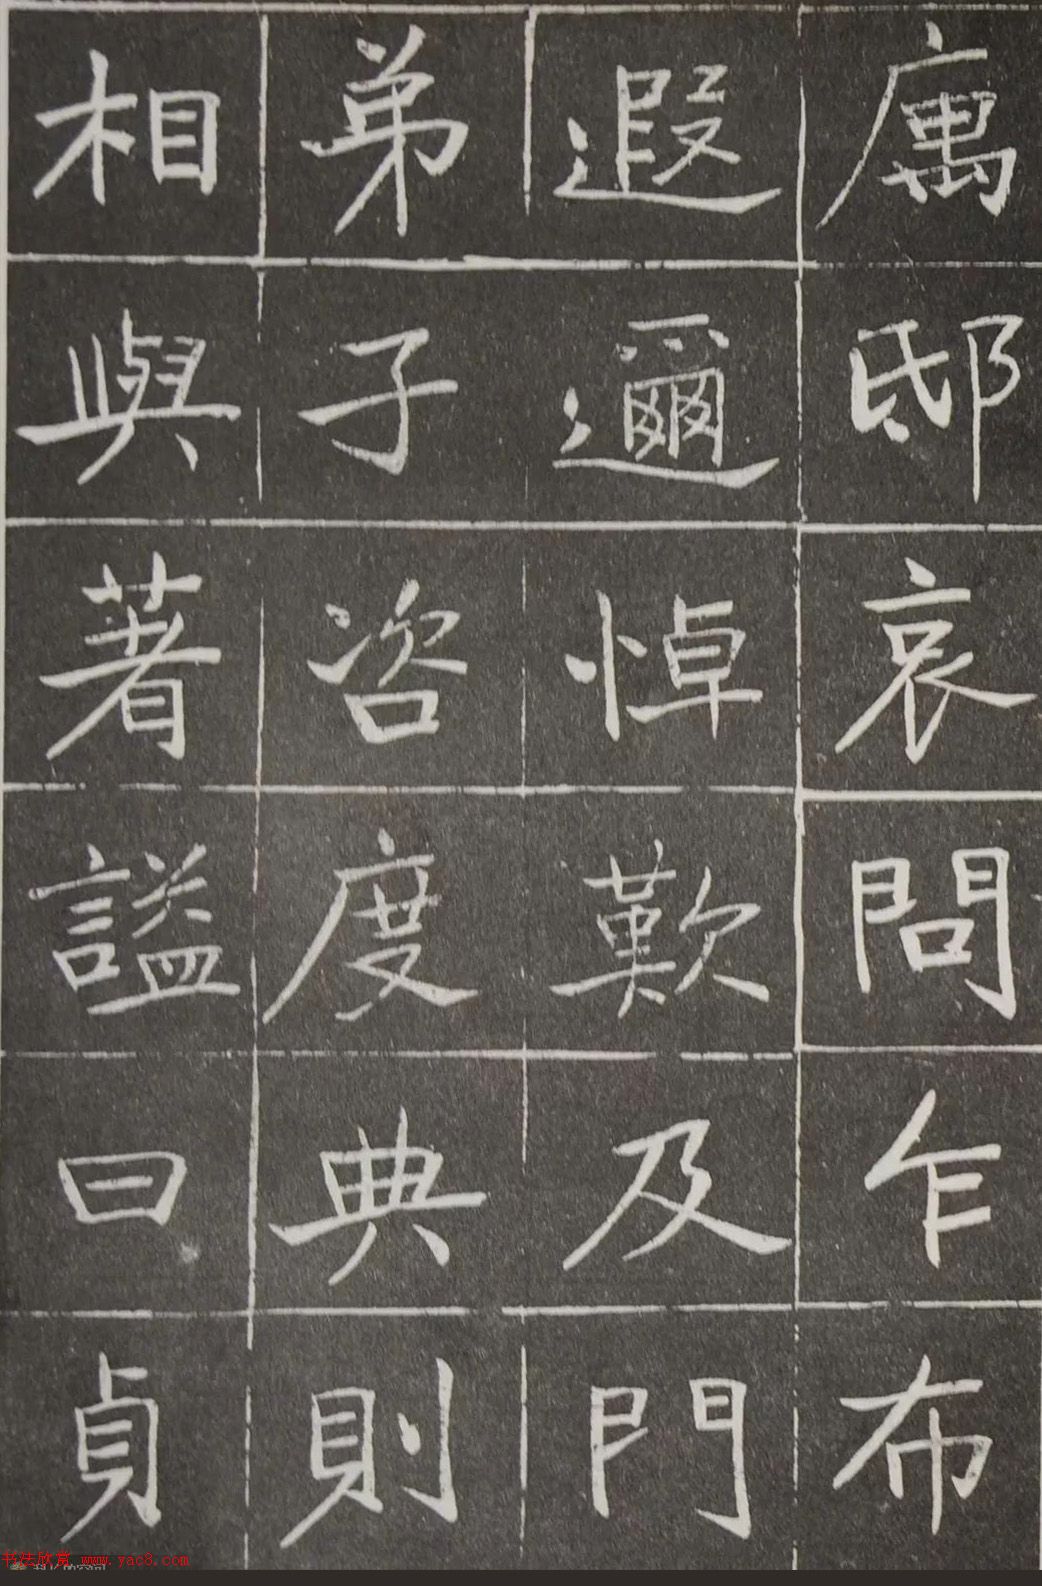 廗邸哀問乍布
遐邇悼歎及門
弟子咨度典則
相與著謚曰貞
书法欣赏 www.yac8.com